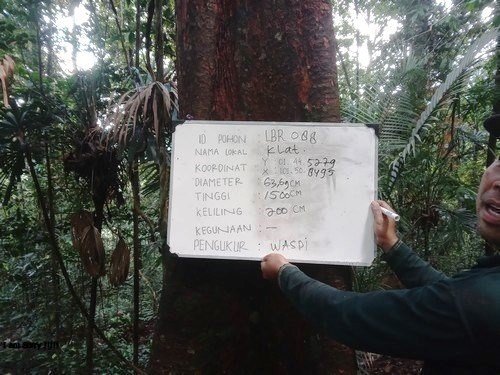 ID POHON : LBR 088
NAMA LOKAL : Klat.
KOORDINAT : Y : 01. 44. 5279
X : 101. 50. 8495
DIAMETER : 63,69 CM
TINGGI : 1500 CM
KELILING : 200 CM
KEGUNAAN : —
PENGUKUR : WASPI